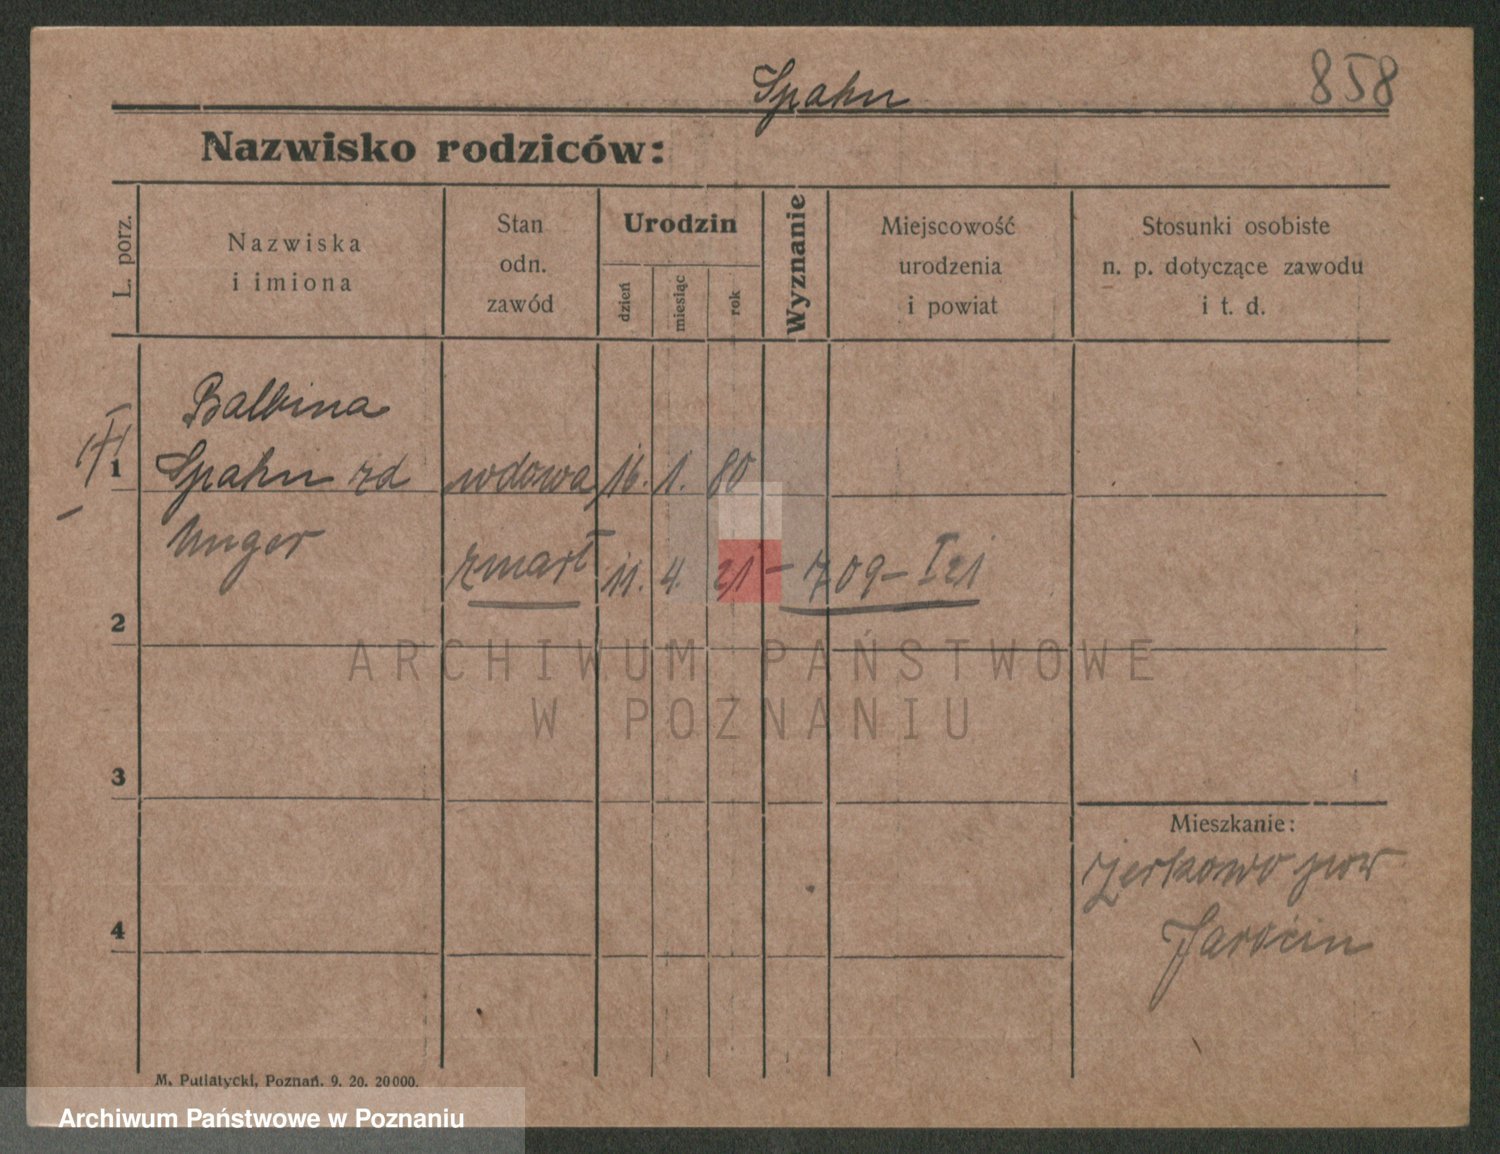 Spahn
858
Nazwisko rodziców:
L. porz.
Nazwiska
i imiona
Stan
odn.
zawód
Urodzin
dzień
miesiąc
rok
Wyznanie
Miejscowość
urodzenia
i powiat
Stosunki osobiste
n. p. dotyczące zawodu
i t. d.
Balbina
1 Spahn zd wdowa 16. 1. 80
Unger
zmarł 11. 4. 21 – 709 – I 21
2
ARCHIWUM PAŃSTWOWE
W POZNANIU
3
Mieszkanie:
Żerkowo pow
4
Jarocin
M. Putiatycki, Poznań. 9. 20. 20000.
Archiwum Państwowe w Poznaniu